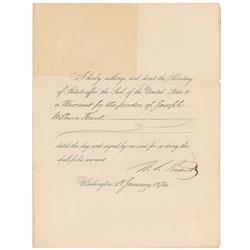 I hereby authorize and direct the Secretary
of State to affix the Seal of the United States to
a Warrant for the pardon of Joseph
William
dated this day, and signed by me, and for so doing this
shall be his warrant.
U. S. Grant
Washington 8th January, 1874.